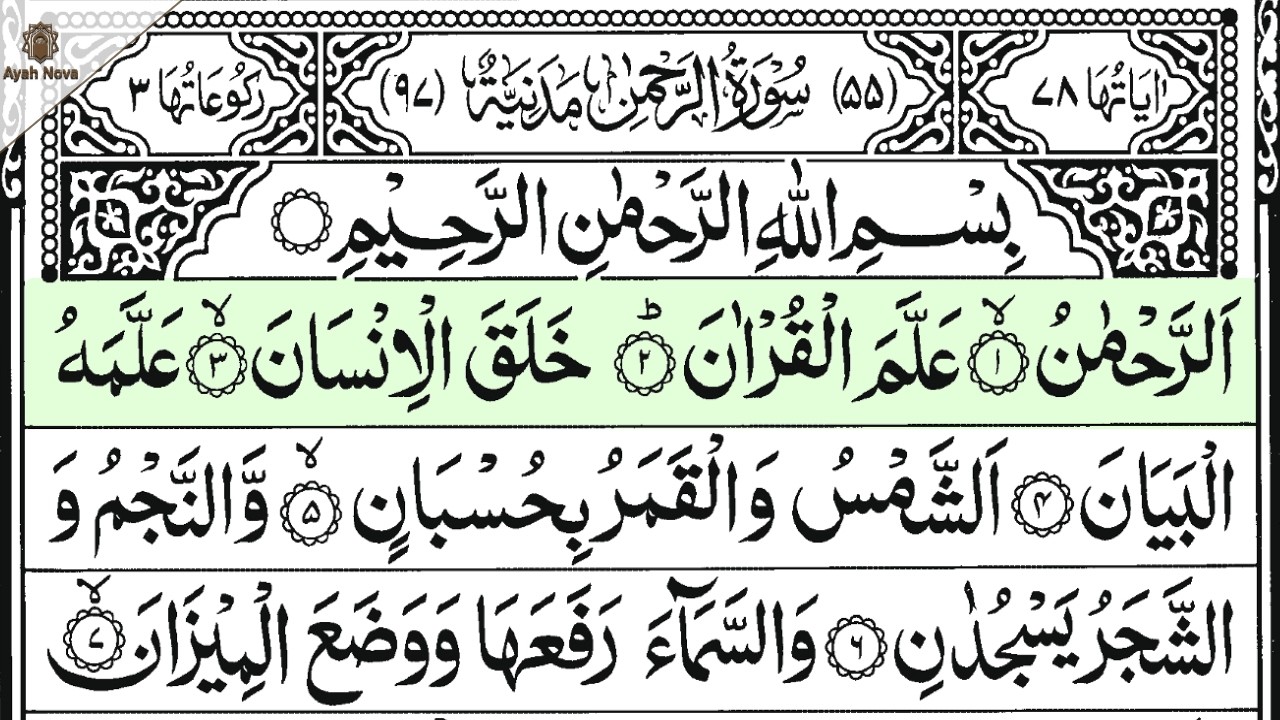 Ayah Nova
اٰيَاتُهَا ٧٨ (٥٥) سُوْرَةُ الرَّحْمٰنِ مَدَنِيَّةٌ (٩٧) رُكُوْعَاتُهَا ٣
بِسْمِ اللّٰهِ الرَّحْمٰنِ الرَّحِيْمِ
اَلرَّحْمٰنُ ۙ﴿١﴾ عَلَّمَ الْقُرْاٰنَ ؕ﴿٢﴾ خَلَقَ الْاِنْسَانَ ۙ﴿٣﴾ عَلَّمَهُ
الْبَيَانَ ﴿٤﴾ اَلشَّمْسُ وَالْقَمَرُ بِحُسْبَانٍ ۙ﴿٥﴾ وَّالنَّجْمُ وَ
الشَّجَرُ يَسْجُدٰنِ ﴿٦﴾ وَالسَّمَآءَ رَفَعَهَا وَوَضَعَ الْمِيْزَانَ ۙ﴿٧﴾